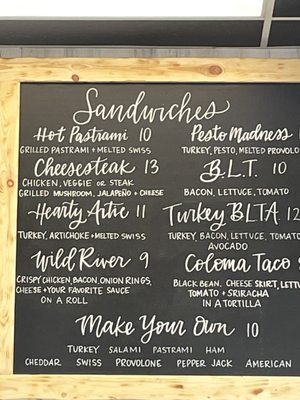 Sandwiches
Hot Pastrami 10
GRILLED PASTRAMI + MELTED SWISS
Cheesesteak 13
CHICKEN, VEGGIE OR STEAK
GRILLED MUSHROOM, JALAPEÑO + CHEESE
Hearty Artie 11
TURKEY, ARTICHOKE + MELTED SWISS
Wild River 9
CRISPY CHICKEN, BACON, ONION RINGS,
CHEESE + YOUR FAVORITE SAUCE
ON A ROLL
Pesto Madness
TURKEY, PESTO, MELTED PROVOLO
B.L.T. 10
BACON, LETTUCE, TOMATO
Turkey BLTA 12
TURKEY, BACON, LETTUCE, TOMATO
AVOCADO
Coloma Taco
BLACK BEAN, CHEESE SKIRT, LETTU
TOMATO + SRIRACHA
IN A TORTILLA
Make Your Own 10
TURKEY SALAMI PASTRAMI HAM
CHEDDAR SWISS PROVOLONE PEPPER JACK AMERICAN